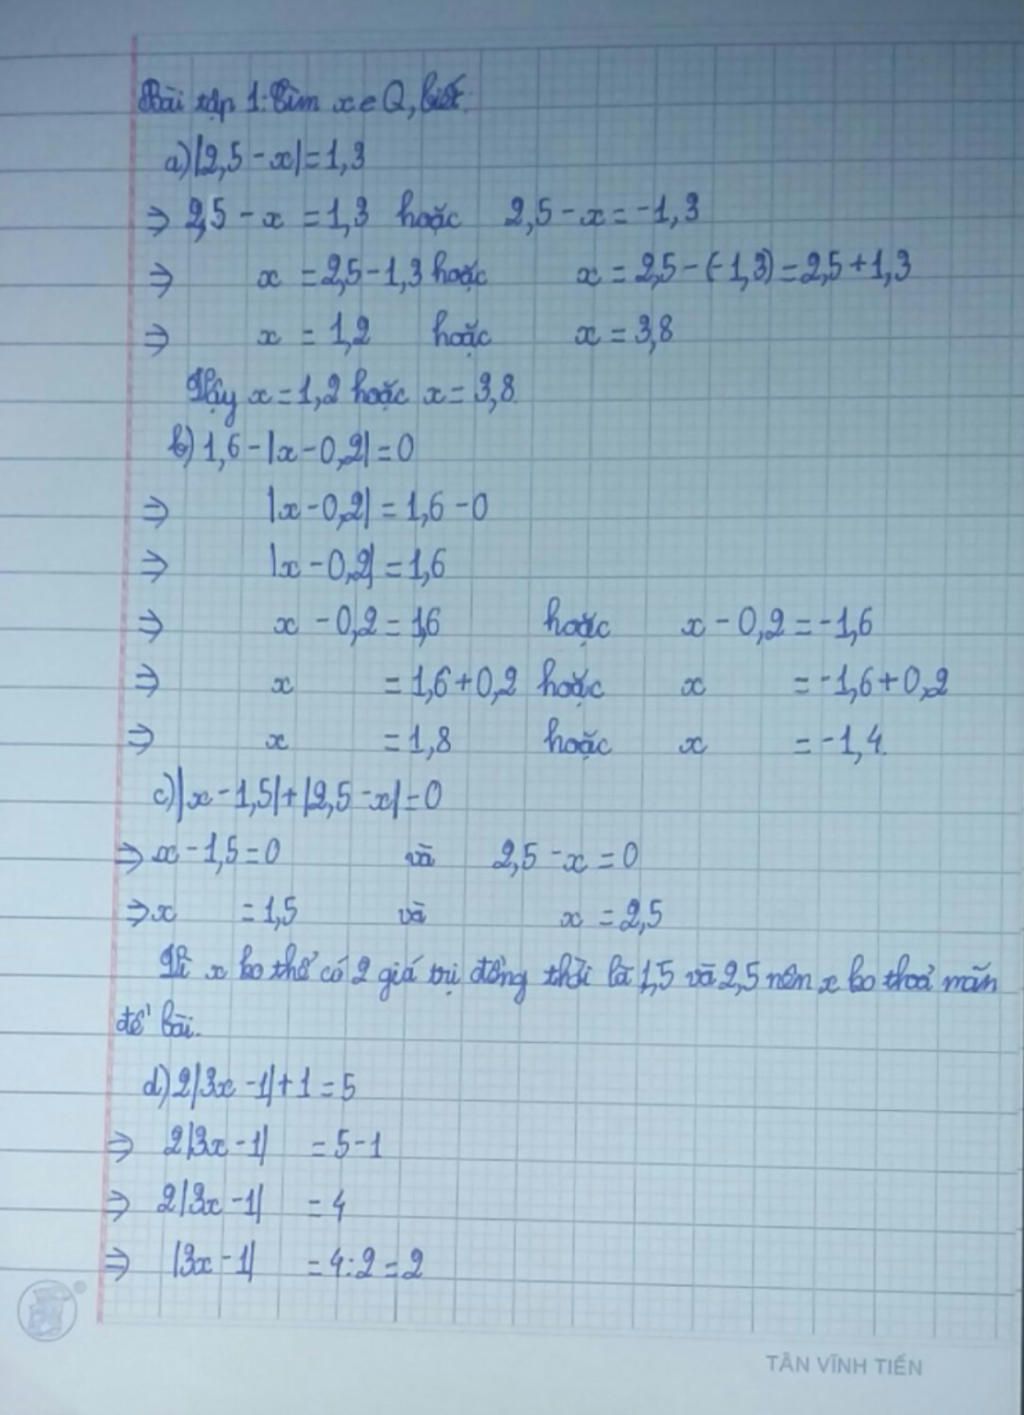 Bài tập 1: Tìm x ∈ Q, biết
a) |2,5 - x| = 1,3
⇒ 2,5 - x = 1,3 hoặc 2,5 - x = -1,3
⇒ x = 2,5 - 1,3 hoặc x = 2,5 - (-1,3) = 2,5 + 1,3
⇒ x = 1,2 hoặc x = 3,8
Vậy x = 1,2 hoặc x = 3,8.
b) 1,6 - |x - 0,2| = 0
⇒ |x - 0,2| = 1,6 - 0
⇒ |x - 0,2| = 1,6
⇒ x - 0,2 = 1,6 hoặc x - 0,2 = -1,6
⇒ x = 1,6 + 0,2 hoặc x = -1,6 + 0,2
⇒ x = 1,8 hoặc x = -1,4.
c) |x - 1,5| + |2,5 - x| = 0
⇒ x - 1,5 = 0 và 2,5 - x = 0
⇒ x = 1,5 và x = 2,5
Vì x ko thể có 2 giá trị đồng thời là 1,5 và 2,5 nên x ko thoả mãn
đề bài.
d) 2|3x - 1| + 1 = 5
⇒ 2|3x - 1| = 5 - 1
⇒ 2|3x - 1| = 4
⇒ |3x - 1| = 4 : 2 = 2
TÂN VĨNH TIẾN